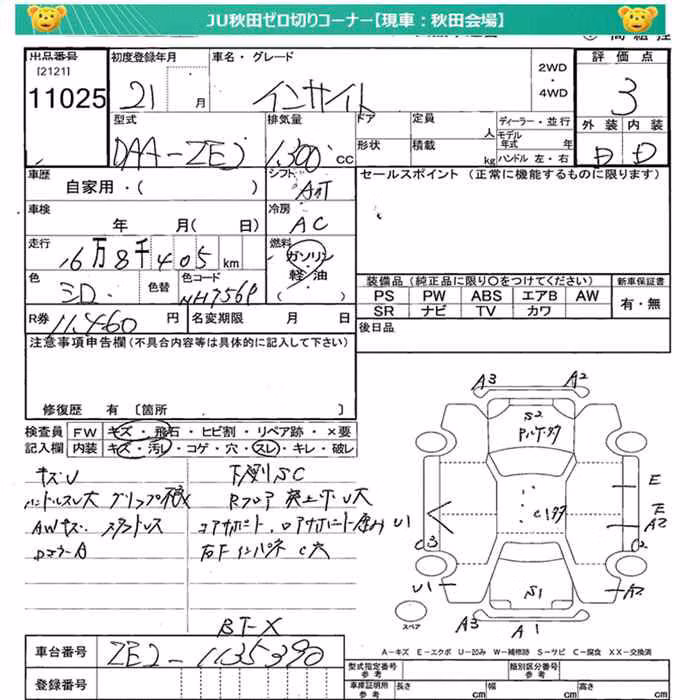 JU秋田ゼロ切りコーナー【現車：秋田会場】
出品番号 初度登録年月 車名・グレード 2WD ・ 4WD 評価点
[2121]
11025 21 月 インサイト 3
型式 排気量 ドア 定員 人 ディーラー・並行 外装 内装
DAA-ZE2 1,300 CC 形状 積載 kg モデル年式 年 ハンドル 左・右 D D
車歴 シフト セールスポイント（正常に機能するものに限ります）
自家用・( ) AT
車検 冷房
年 月( 日) AC
走行 燃料
16万8千405km ガソリン
色 色替 色コード 軽・油
NH756P ( )
装備品（純正品に限り○をつけてください） 新車保証書
PS PW ABS エアB AW 有・無
SR ナビ TV カワ
R券 11,460 円 名変期限 月 日 後日品
注意事項申告欄（不具合内容等は具体的に記入して下さい）
修復歴 有 〔箇所 〕
検査員 FW キズ・飛石・ヒビ割・リペア跡・×要
記入欄 内装 キズ・汚レ・コゲ・穴・スレ・キレ・破レ
キズU 下廻リSC
ハンドルスレ大 グリップ
AWキズ スタッドレス コアサポート、ロアサポート
右Fインパネ C穴
A3 A2
S2
E
E
A2
U1
C3 C2
U1 A2
S1
A1
スペア
BT-X
A－キズ E－エクボ U－凹み W－補修跡 S－サビ C－腐食 XX－交換済
車台番号 ZE2-1135390
登録番号
型式指定番号 参考 類別区分番号 参考
車庫証明用 参考 長さ cm 幅 cm 高さ cm